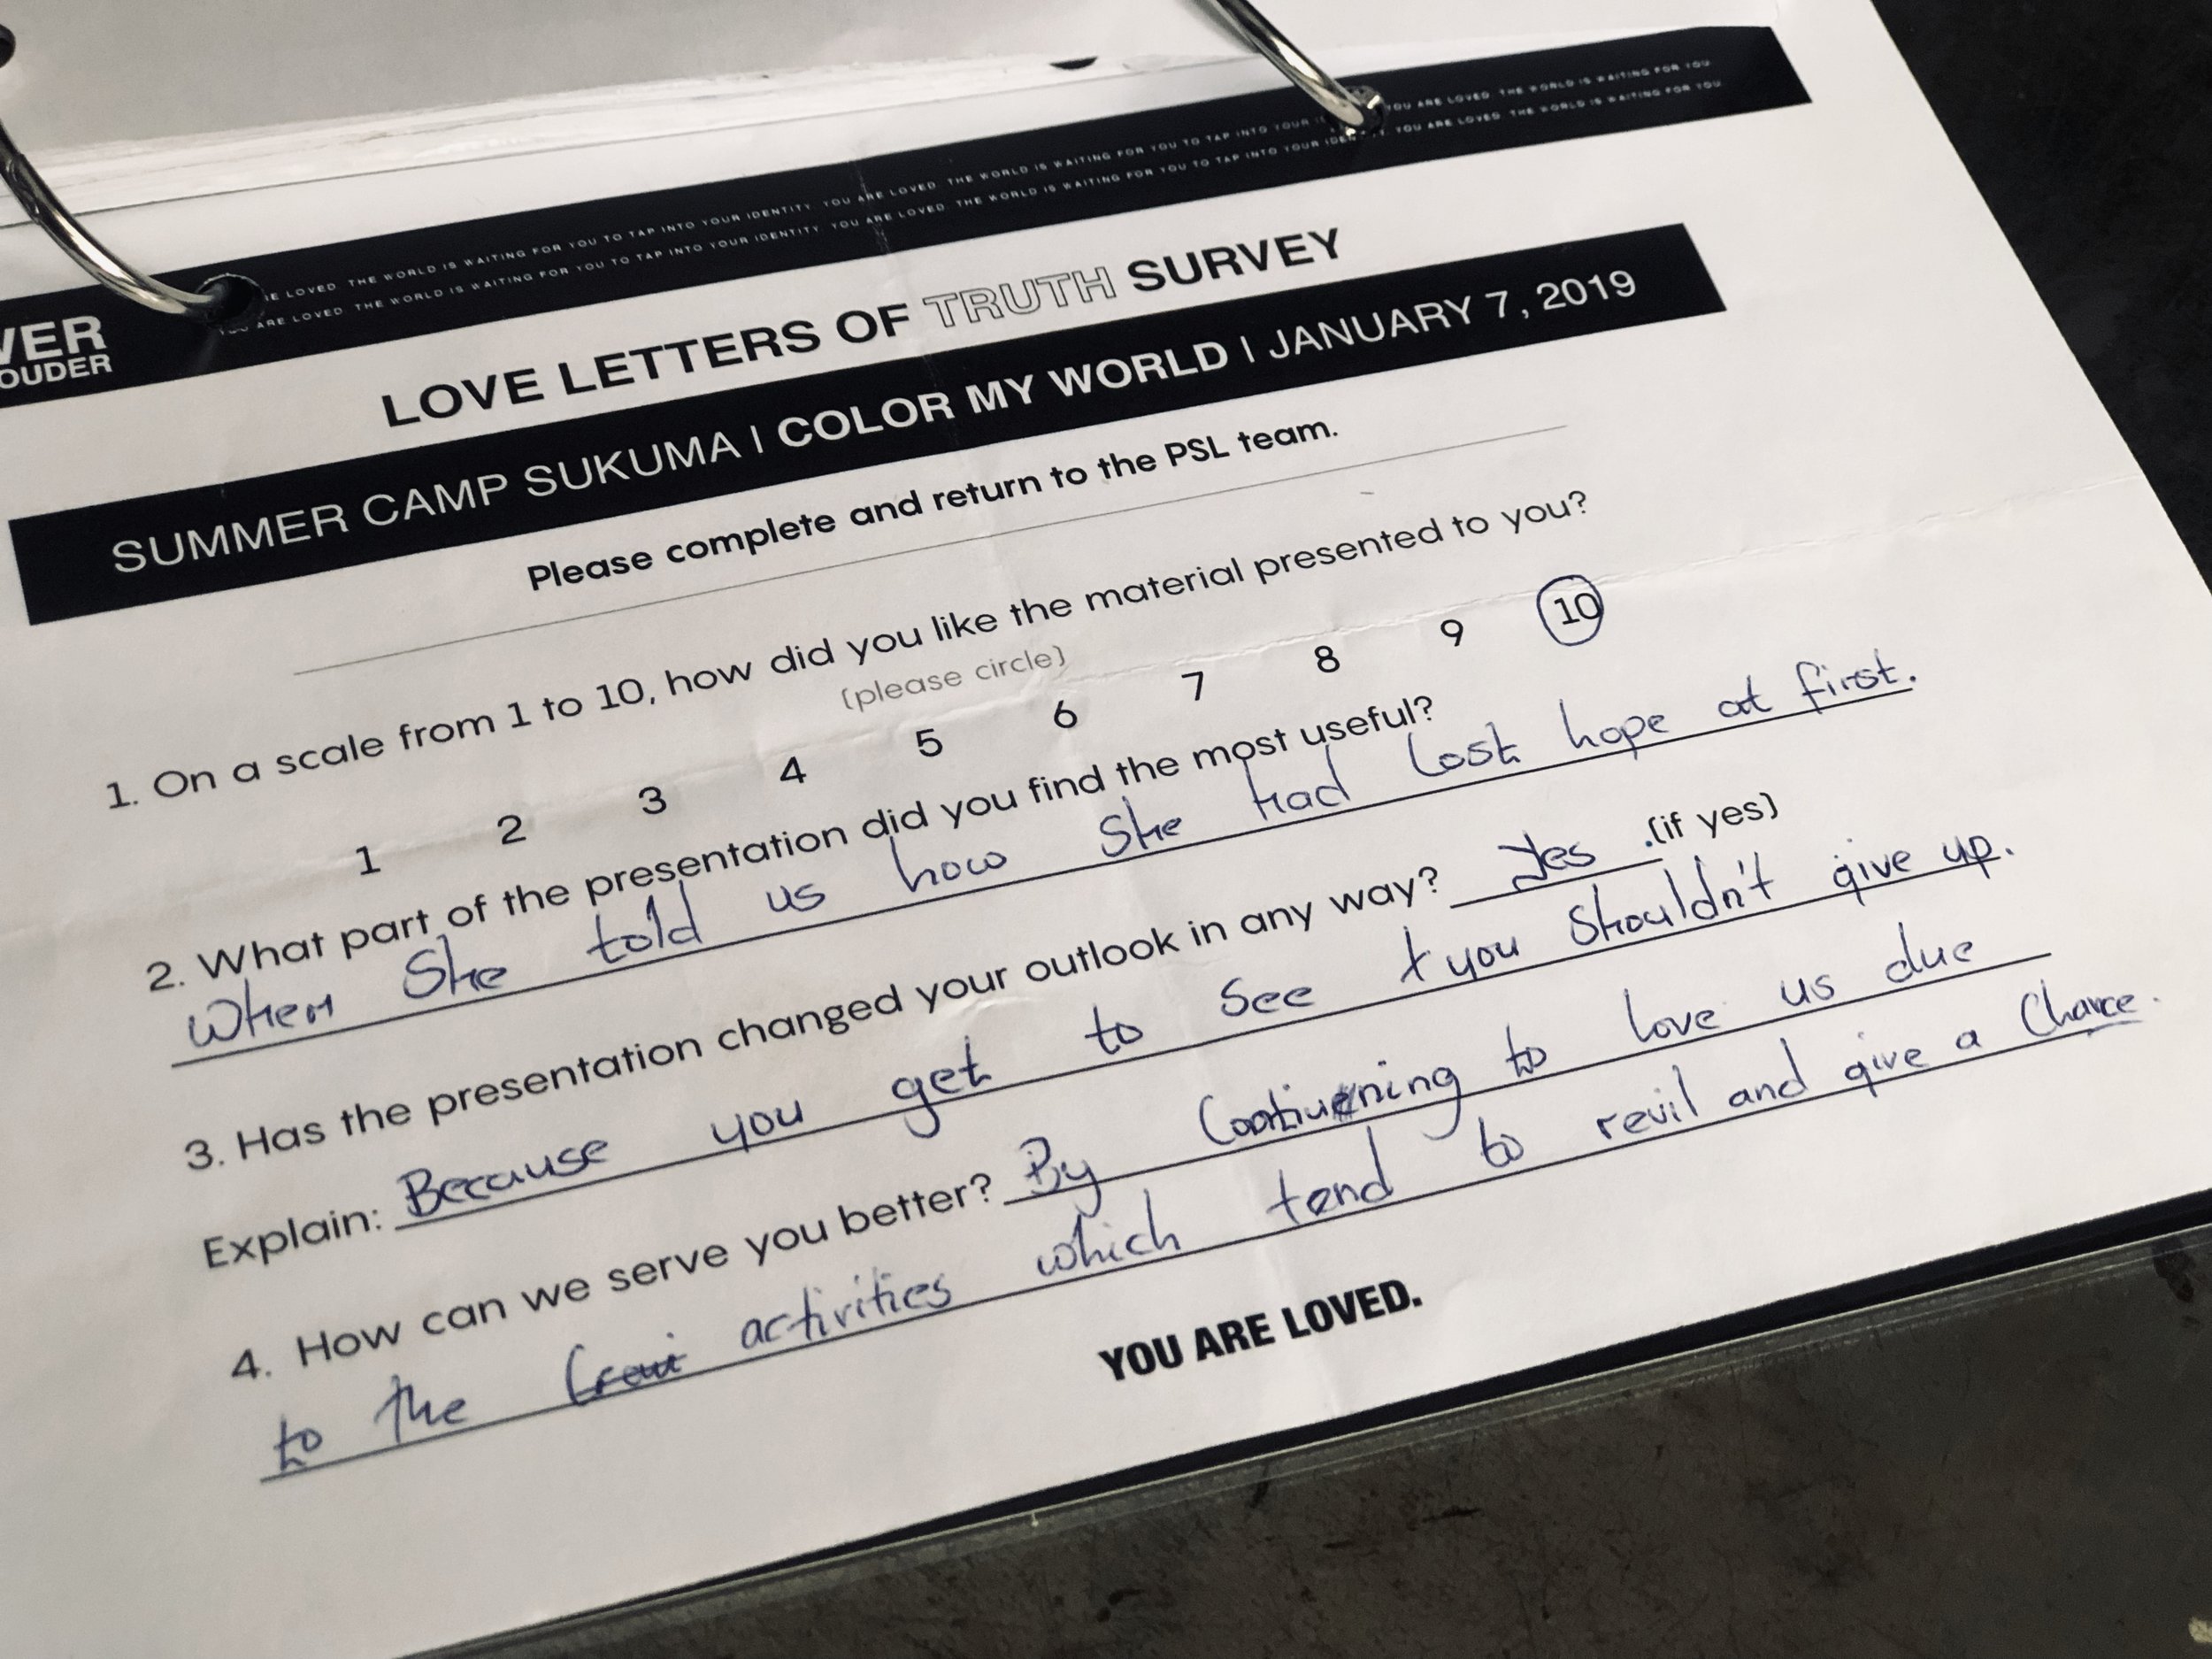 YOU ARE LOVED. THE WORLD IS WAITING FOR YOU TO TAP INTO YOUR IDENTITY. YOU ARE LOVED. THE WORLD IS WAITING FOR YOU TO TAP INTO YOUR YOU ARE LOVED. THE WORLD IS WAITING FOR YOU
ARE LOVED. THE WORLD IS WAITING FOR YOU TO TAP INTO YOUR IDENTITY. YOU ARE LOVED. THE WORLD IS WAITING FOR YOU TO TAP INTO YOUR IDENTITY. YOU ARE LOVED. THE WORLD IS WAITING FOR YOU
VER
OUDER
LOVE LETTERS OF TRUTH SURVEY
SUMMER CAMP SUKUMA | COLOR MY WORLD | JANUARY 7, 2019
Please complete and return to the PSL team.
1. On a scale from 1 to 10, how did you like the material presented to you?
(please circle)
1 2 3 4 5 6 7 8 9 10
2. What part of the presentation did you find the most useful?
When She told us how She had lost hope at first.
3. Has the presentation changed your outlook in any way? Yes .(if yes)
Explain: Because you get to see t you shouldn't give up.
4. How can we serve you better? By Continuening to love us due
to the activities which tend to revil and give a Chance.
YOU ARE LOVED.